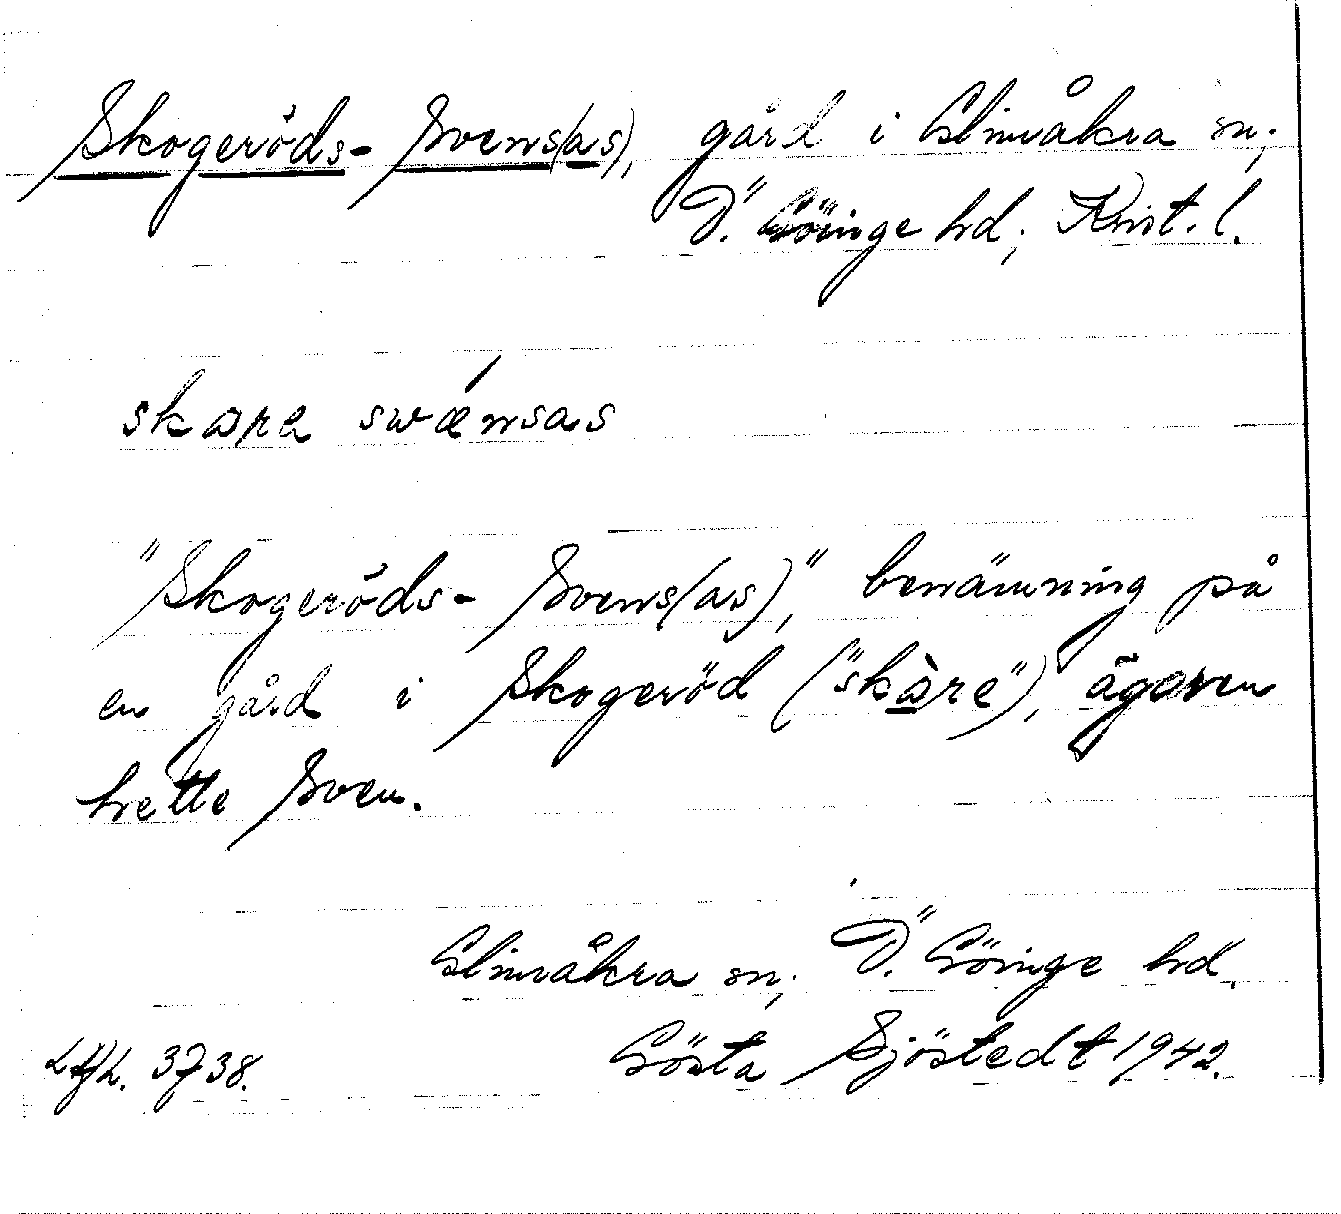 Skogeröds- Svens(as), gård i Glimåkra sn;
Ö. Göinge hd; Krist. l.
skɔra swǽnsas
"Skogeröds- Svens(as)", benämning på
en gård i Skogeröd ("skàre"), ägaren
hette Sven.
Glimåkra sn; Ö. Göinge hd.
Gösta Sjöstedt 1942.
3738.